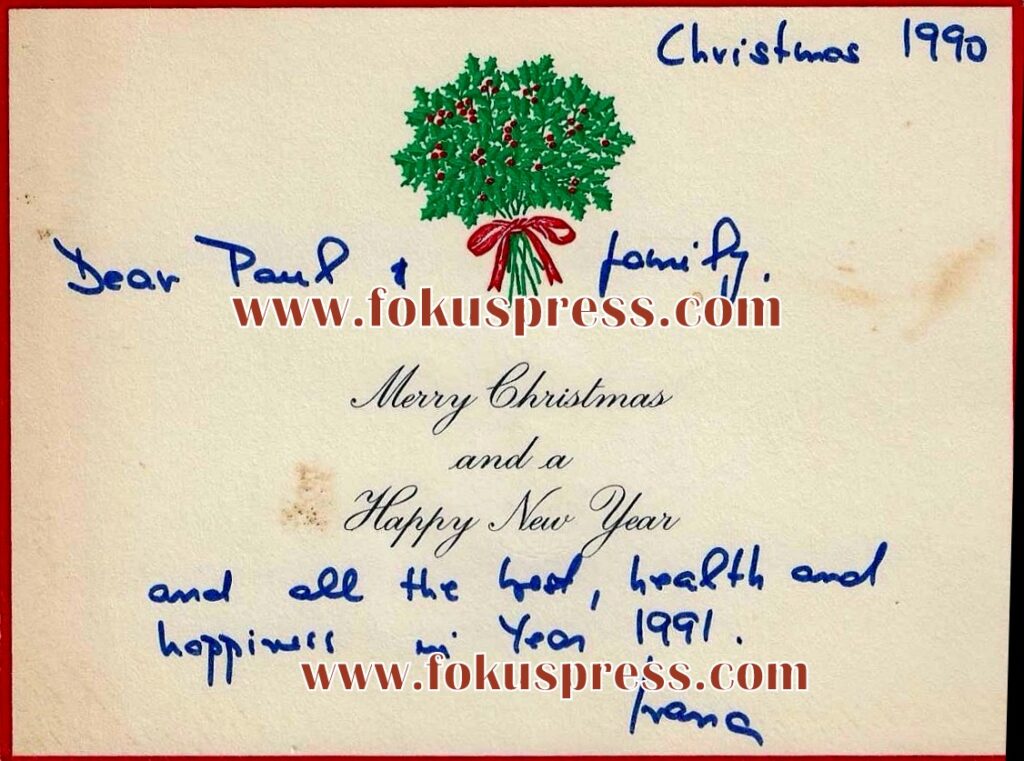 Christmas 1990
Dear Paul & family.
www.fokuspress.com
Merry Christmas
and a
Happy New Year
and all the best, health and
happiness in Year 1991.
www.fokuspress.com
Ivana